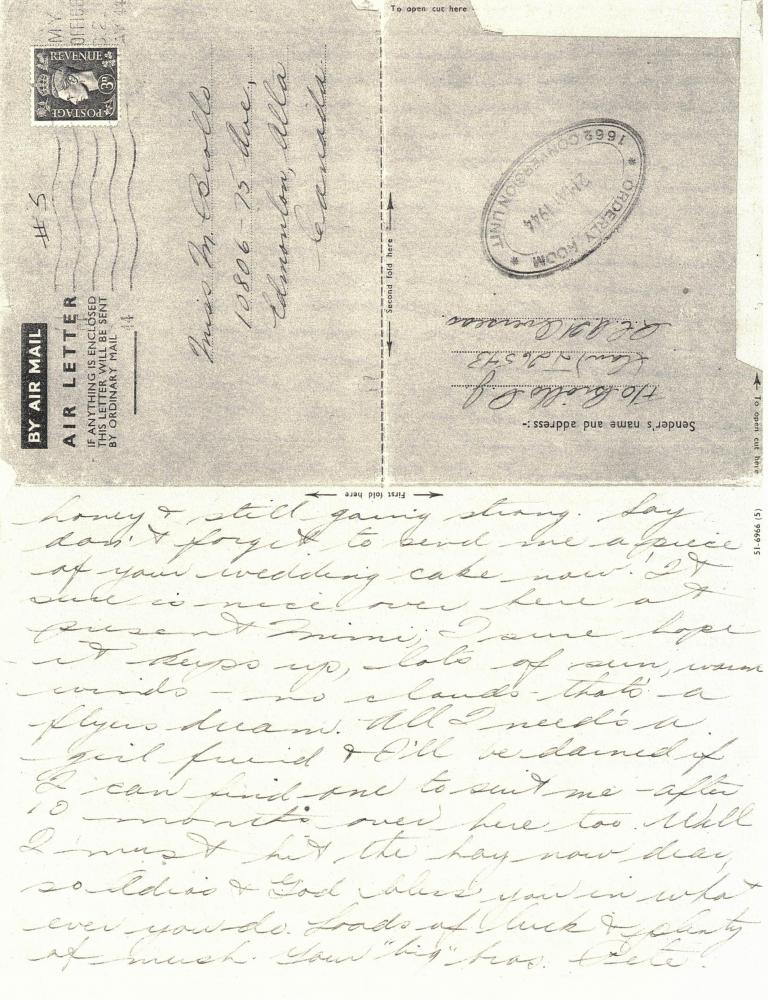 To open cut here
POSTAGE
REVENUE
3D
# 5
BY AIR MAIL
AIR LETTER
IF ANYTHING IS ENCLOSED
THIS LETTER WILL BE SENT
BY ORDINARY MAIL
Miss M. Biollo
10806 - 75 Ave.,
Edmonton, Alta
Canada
Second fold here
ORDERLY ROOM
1662 CONVERSION UNIT
1944
Sender's name and address:-
Biollo
Can J 26543
Overseas
To open cut here
First fold here
51-6966 (5)
honey & still going strong. Say
don't forget to send me a piece
of your wedding cake now! It
sure is nice over here at
present Mimi; I sure hope
it keeps up, lots of sun, warm
winds - no clouds - that's a
flyers dream. All I need's a
girl friend & I'll be darned if
I can find one to suit me - after
10 months over here too. Well
I must hit the hay now dear,
so Adios & God bless you in what
ever you do. Loads of luck & plenty
of mush. Your "big" bros. Pete.